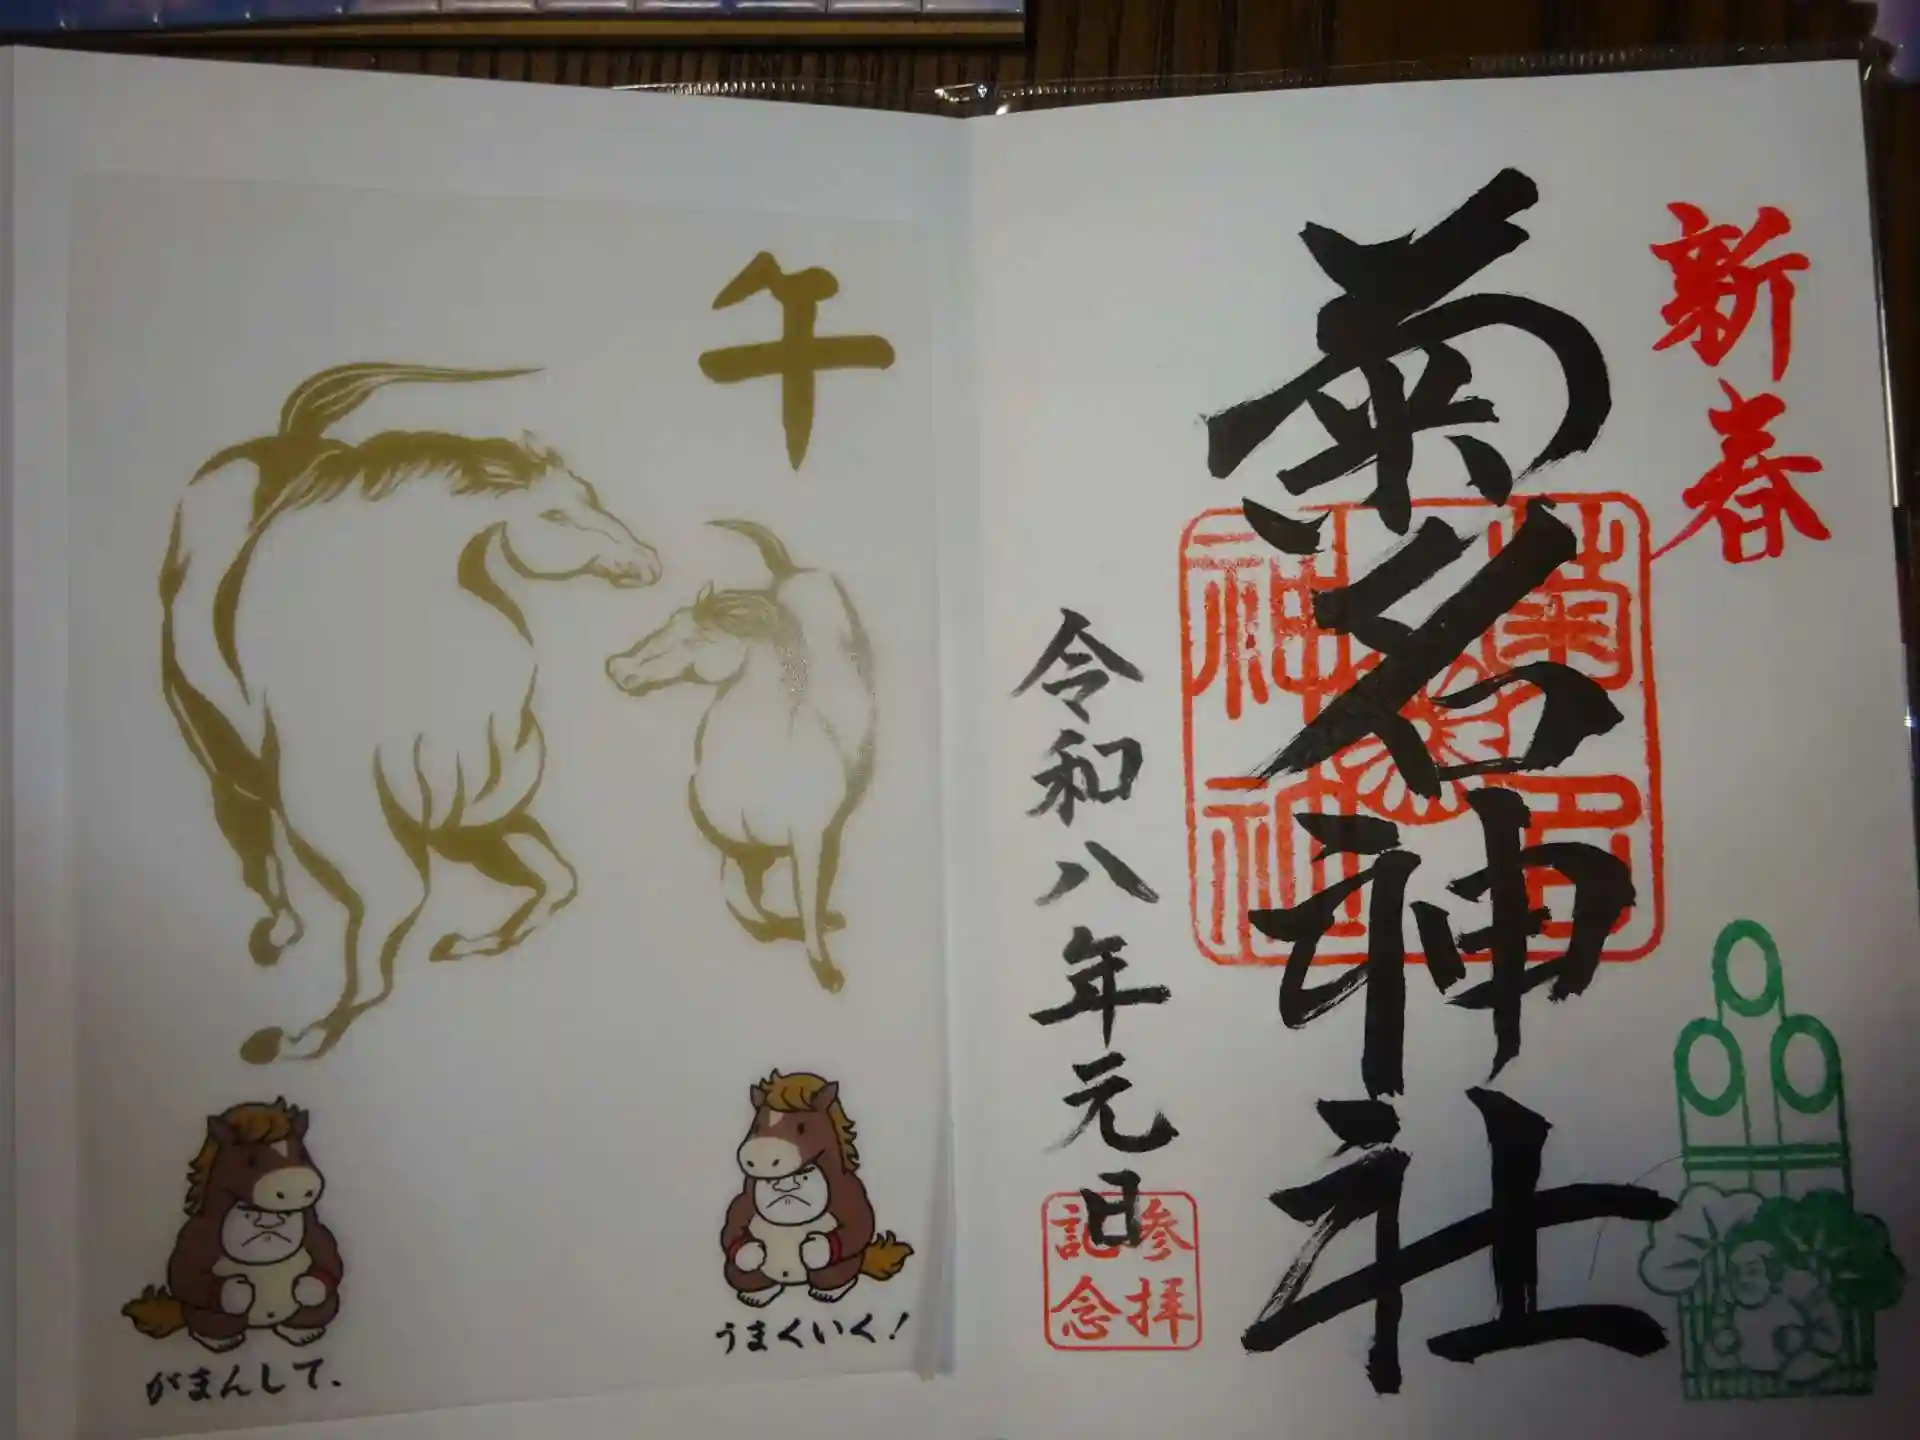 新春
菊名神社
菊名
神社
令和八年元日
参拝
記念
午
うまくいく!
がまんして、